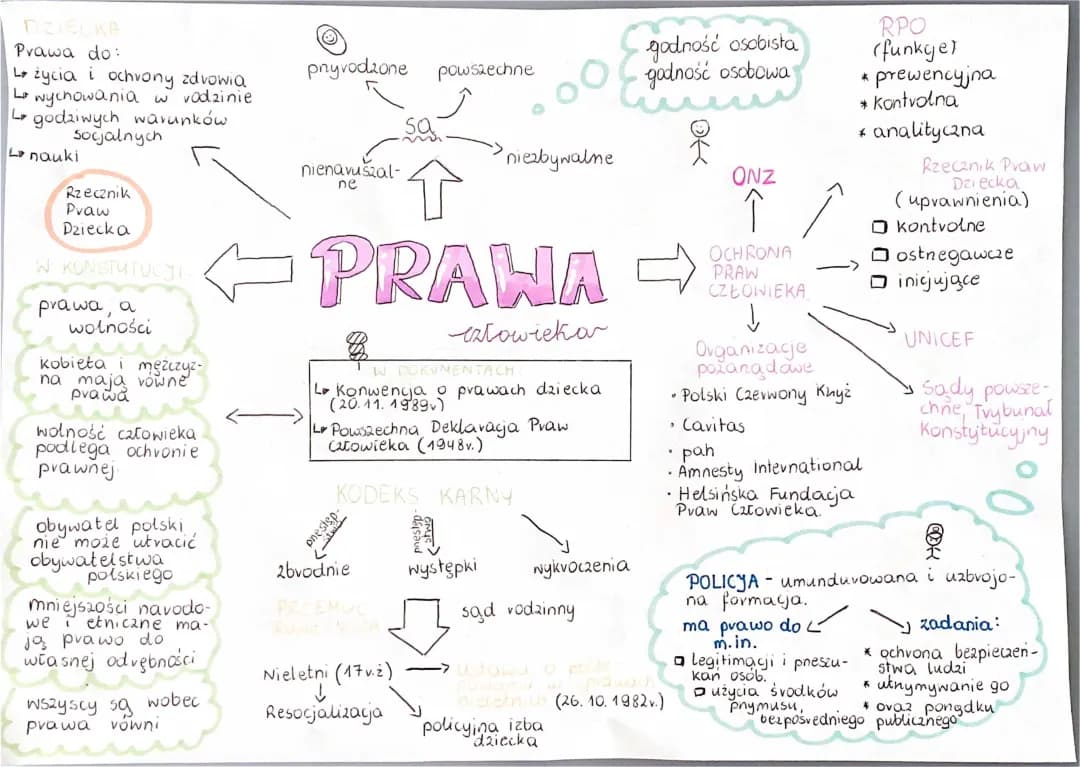 DZIECKA
Prawa do:
↳ życia i ochrony zdrowia
↳ wychowania w rodzinie
↳ godziwych warunków
socjalnych
↳ nauki
Rzecznik
Praw
Dziecka
przyrodzone
powszechne
są
nienaruszal-
ne
niezbywalne
godność osobista
godność osobowa
RPO
(funkcje)
* prewencyjna
* kontrolna
* analityczna
PRAWA
człowieka
ONZ
OCHRONA
PRAW
CZŁOWIEKA
Rzecznik Praw
Dziecka
(uprawnienia)
kontrolne
ostrzegawcze
inicjujące
UNICEF
Sądy powsze-
chne, Trybunał
Konstytucyjny
Organizacje
pozarządowe
• Polski Czerwony Krzyż
• Caritas
• pah
• Amnesty International
• Helsińska Fundacja
Praw Człowieka.
W KONSTYTUCJI
prawa, a
wolności
kobieta i mężczyz-
na mają równe
prawa
wolność człowieka
podlega ochronie
prawnej.
obywatel polski
nie może utracić
obywatelstwa
polskiego
mniejszości narodo-
we i etniczne ma-
ją prawo do
własnej odrębności
wszyscy są wobec
prawa równi
W DOKUMENTACH
↳ Konwencja o prawach dziecka
(20.11.1989r)
↳ Powszechna Deklaracja Praw
Człowieka (1948r.)
KODEKS KARNY
przestęp-
stwa
przestęp-
stwa
zbrodnie
występki
wykroczenia
PRZEMOC
sąd rodzinny
Nieletni (17r.ż)
Ustawa o postę-
powaniu w sprawach
nieletnich (26.10.1982r.)
Resocjalizacja
policyjna izba
dziecka
POLICJA - umundurowana i uzbrojo-
na formacja.
ma prawo do
m.in.
legitymacji i przeszu-
kań osób.
użycia środków
przymusu
bezpośredniego
zadania:
* ochrona bezpieczeń-
stwa ludzi
* utrzymywanie go
* oraz porządku
publicznego